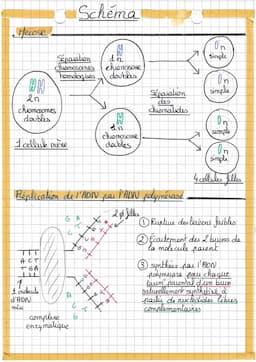 Schéma
Méiose
Séparation
chromosomes
homologues
2n
chromosomes
doubles
1 cellule mère
1n
chromosome
doubles
1n
chromosome
doubles
Séparation
des
chromatides
1n
simple
n
simple
n
simple
1n
simple
4 cellules filles
Réplication de l'ADN par l'ADN polymérase
A C T
T G A
1 molécule
d'ADN
mère
complexe
enzymatique
G A
C T
A
C
T
G
2 ADN filles
① Rupture des liaisons faibles
② Écartement des 2 brins de
la molécule parent
③ synthèse par l'ADN
polymérase pour chaque
brin parental d'un brin
nouvellement synthétisé à
partir de nucléotides libres
complémentaires